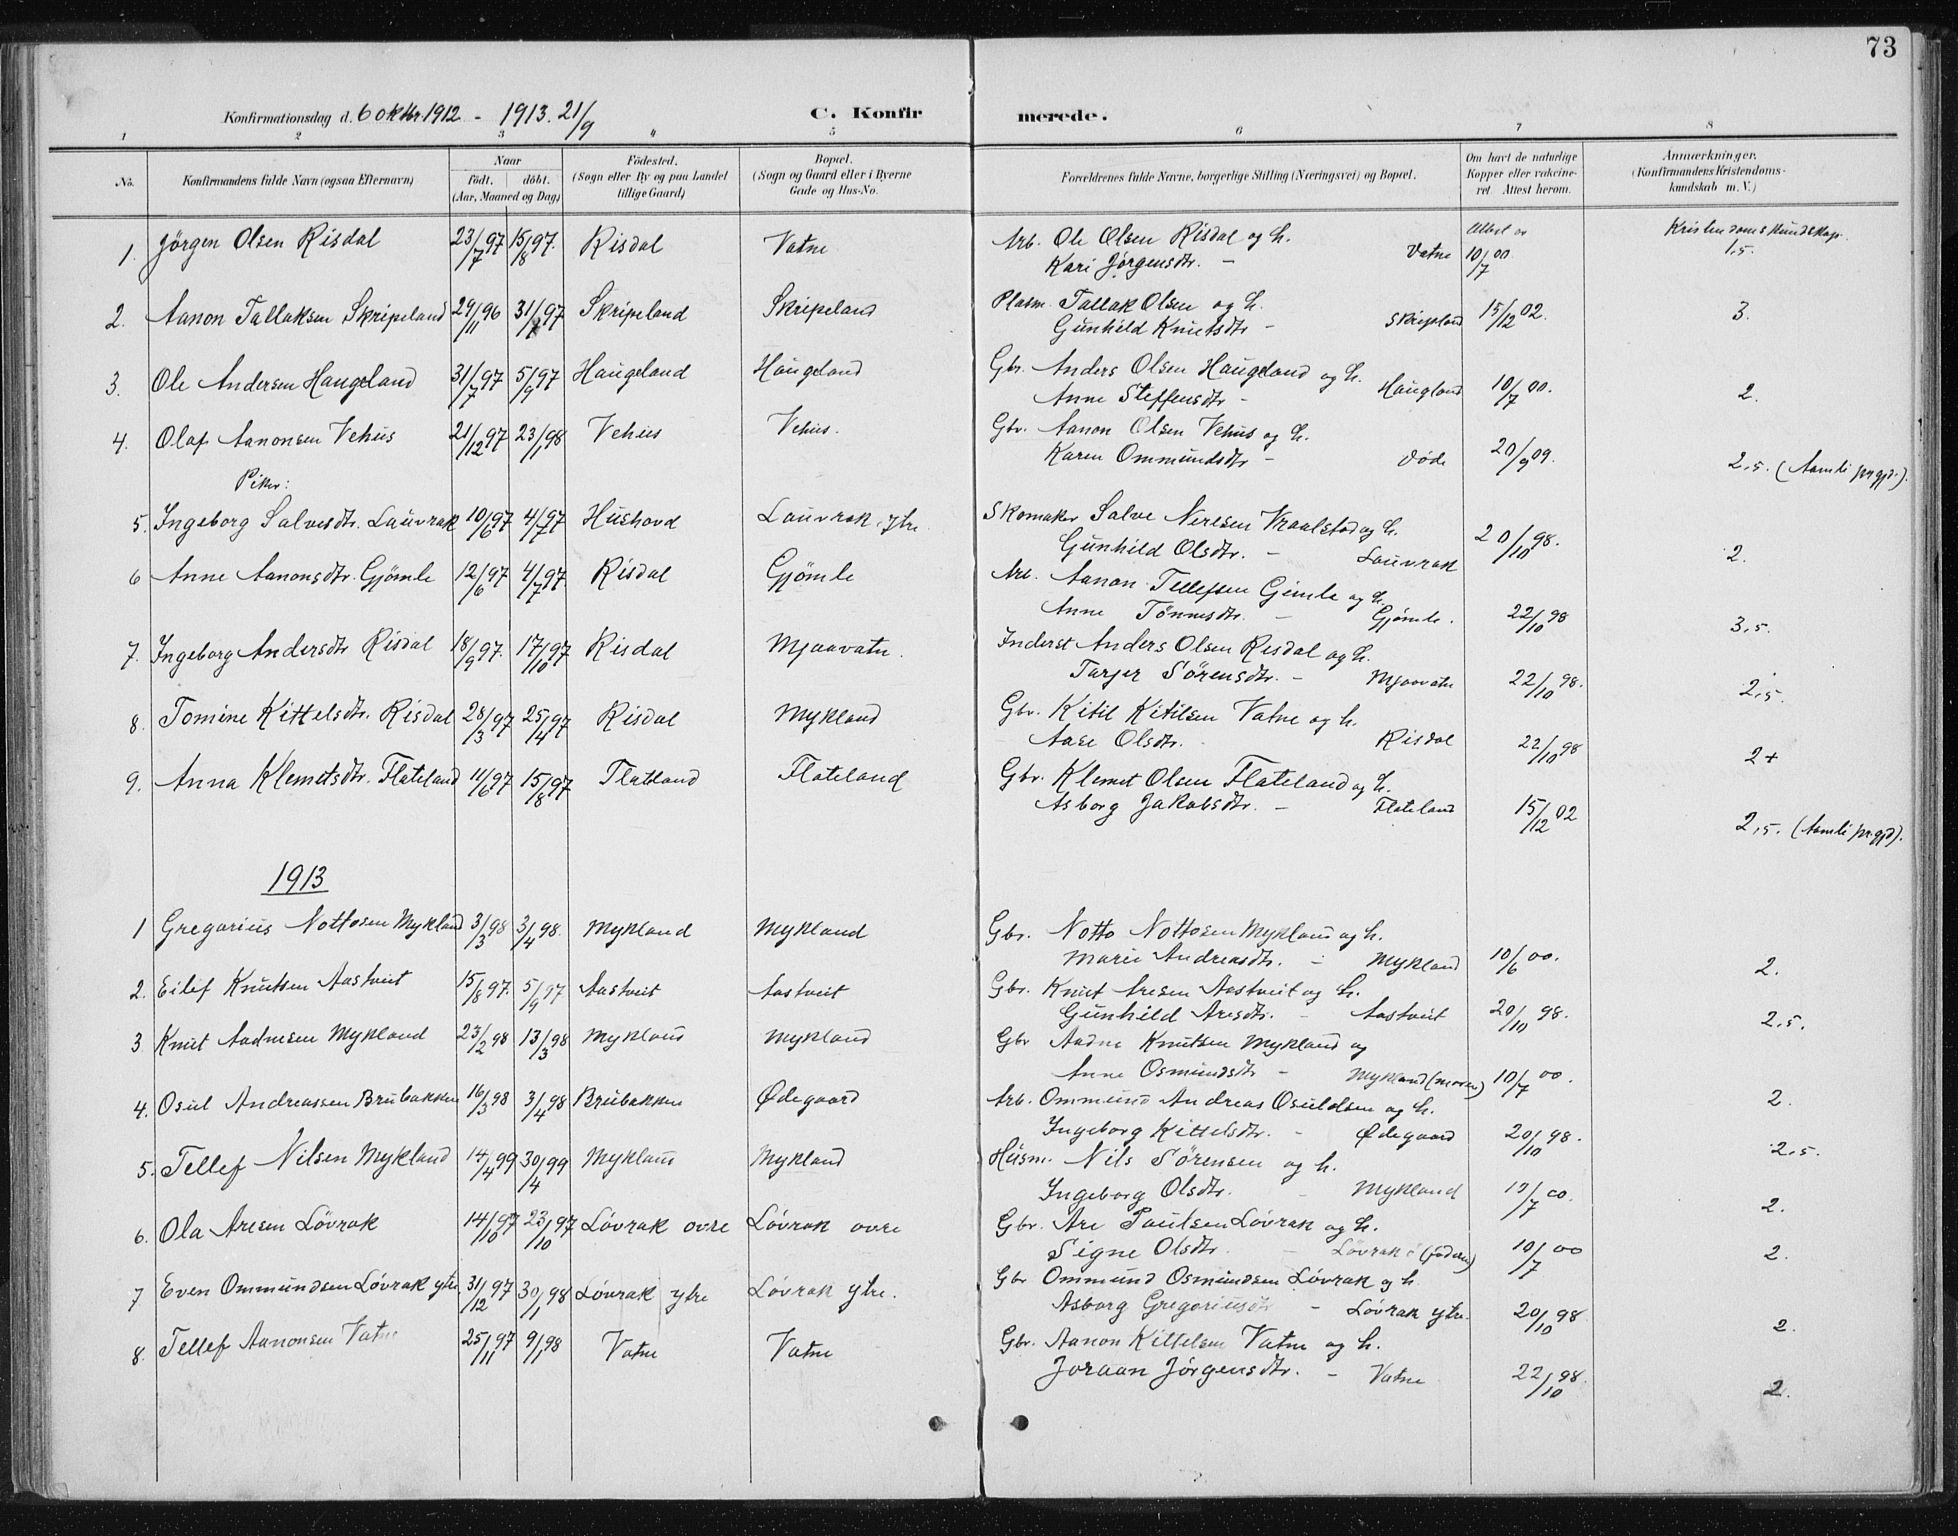 73
Konfirmationsdag d. 6 oktbr. 1912 - 1913. 21/9 C. Konfirmerede.
1 2 3 4 5 6 7 8
No. Konfirmandens fulde Navn (ogsaa Efternavn) Naar födt. döbt. (Aar, Maaned og Dag) Födested. (Sogn eller By og paa Landet tillige Gaard) Bopæl. (Sogn og Gaard eller i Byerne Gade og Hus-No. Forældrenes fulde Navne, borgerlige Stilling (Næringsvei) og Bopæl. Om havt de naturlige Kopper eller vakcineret. Attest herom. Anmærkninger. (Konfirmandens Kristendomskundskab m. V.)
Attest av Kristendomskundskap.
1. Jörgen Olsen Risdal 23/7 97 15/8 97. Risdal Vatne Arb. Ole Olsen Risdal og h. 10/7 00. 1,5.
Kari Jørgensdtr. - Vatne
2. Aanon Tallaksen Skripeland 29/11 96 31/1 97 Skripeland Skripeland Plasm. Tallak Olsen og h. 15/12 02. 3.
Gunhild Knutsdtr - Skripeland
3. Ole Andersen Haugeland 31/7 97 5/9 97 Haugeland Haugeland Gbr. Anders Olsen Haugeland og h. 10/7 00. 2.
Anne Steffensdtr - Haugland
4. Olaf Aanonsen Vehus 21/12 97 23/1 98 Vehus Vehus. Gbr. Aanon Olsen Vehus og h.
Karen Ommundsdtr - døde 20/9 09. 2,5. (Aamli prgjd.).
Piker:
5. Ingeborg Salvesdtr. Lauvrak 10/6 97 4/7 97 Hushovd Lauvrak ytre Skomaker Salve Nerisen Vraalstad og h.
Gunhild Olsdtr. - Lauvrak 20/10 98. 2.
6 Anne Aanonsdtr. Gjömle 12/6 97 4/7 97. Risdal Gjömle Arb. Aanon Tellefsen Gimle og h.
Anne Tönnesdtr. - Gjömle. 22/10 98 3,5.
7. Ingeborg Andersdtr Risdal 18/9 97. 17/10 97 Risdal Mjaavatn. Inderst Anders Olsen Risdal og h.
Tarjer Sörensdtr. - Mjaavatn 22/10 98. 2,5.
8. Tomine Kittelsdtr. Risdal 28/3 97 25/4 97 Risdal Mykland Gbr. Kitil Kitilsen Vatne og h.
Aase Olsdtr. Risdal 22/10 98 2+
9. Anna Klemetsdtr. Flateland 11/6 97 15/8 97 Flateland Flateland Gbr. Klemet Olsen Flateland og h.
Asborg Jakobsdtr. - Flateland 15/12 02 2,5. (Aamli prgjd).
1913
1 Gregorius Nottosen Mykland 3/3 98 3/4 98. Mykland Mykland Gbr. Notto Nottosen Mykland og h.
Marie Andreasdtr. - Mykland 10/6 00. 2.
2. Eilef Knutsen Aastveit 15/8 97. 5/9 97 Aastveit Aastveit Gbr. Knut Aresen Aastveit og h.
Gunhild Aresdtr. - Aastveit 20/10 98. 2,5.
3 Knut Aadnesen Mykland 23/2 98 13/3 98 Mykland Mykland Gbr Aadne Knutsen Mykland og
Anne Osmundsdtr - Mykland (moren) 10/7 00. 2.
4. Osul Andreassen Brubakken 16/3 98 3/4 98 Brubakken Ødegaard Arb. Ommund Andreas Osuldsen og h.
Ingeborg Kittelsdtr. - Ødegaard 20/10 98. 2,5.
5. Tellef Nilsen Mykland 14/4 99 30/4 99 Mykland Mykland Husm. Nils Sörensen og h.
Ingeborg Olsdtr. - Mykland 10/7 00. 2.
6. Ola Aresen Lövrak 14/10 97 23/10 97 Lövrak ovre Lövrak ovre Gbr. Are Paulsen Lövrak og h.
Signe Olsdtr. - Lövrak (faderen) 10/7 00 2.
7 Even Ommundsen Lövrak ytre. 31/12 97 30/1 98 Lövrak ytre Lövrak ytre. Gbr Ommund Osmundsen Lövrak og h.
Asborg Gregoriusdtr - Lövrak ytre. 20/10 98 2.
8. Tellef Aanonsen Vatne 25/11 97 9/1 98 Vatne Vatne Gbr. Aanon Kittelsen Vatne og h.
Joraan Jörgensdtr. - Vatne 22/10 98. 2.